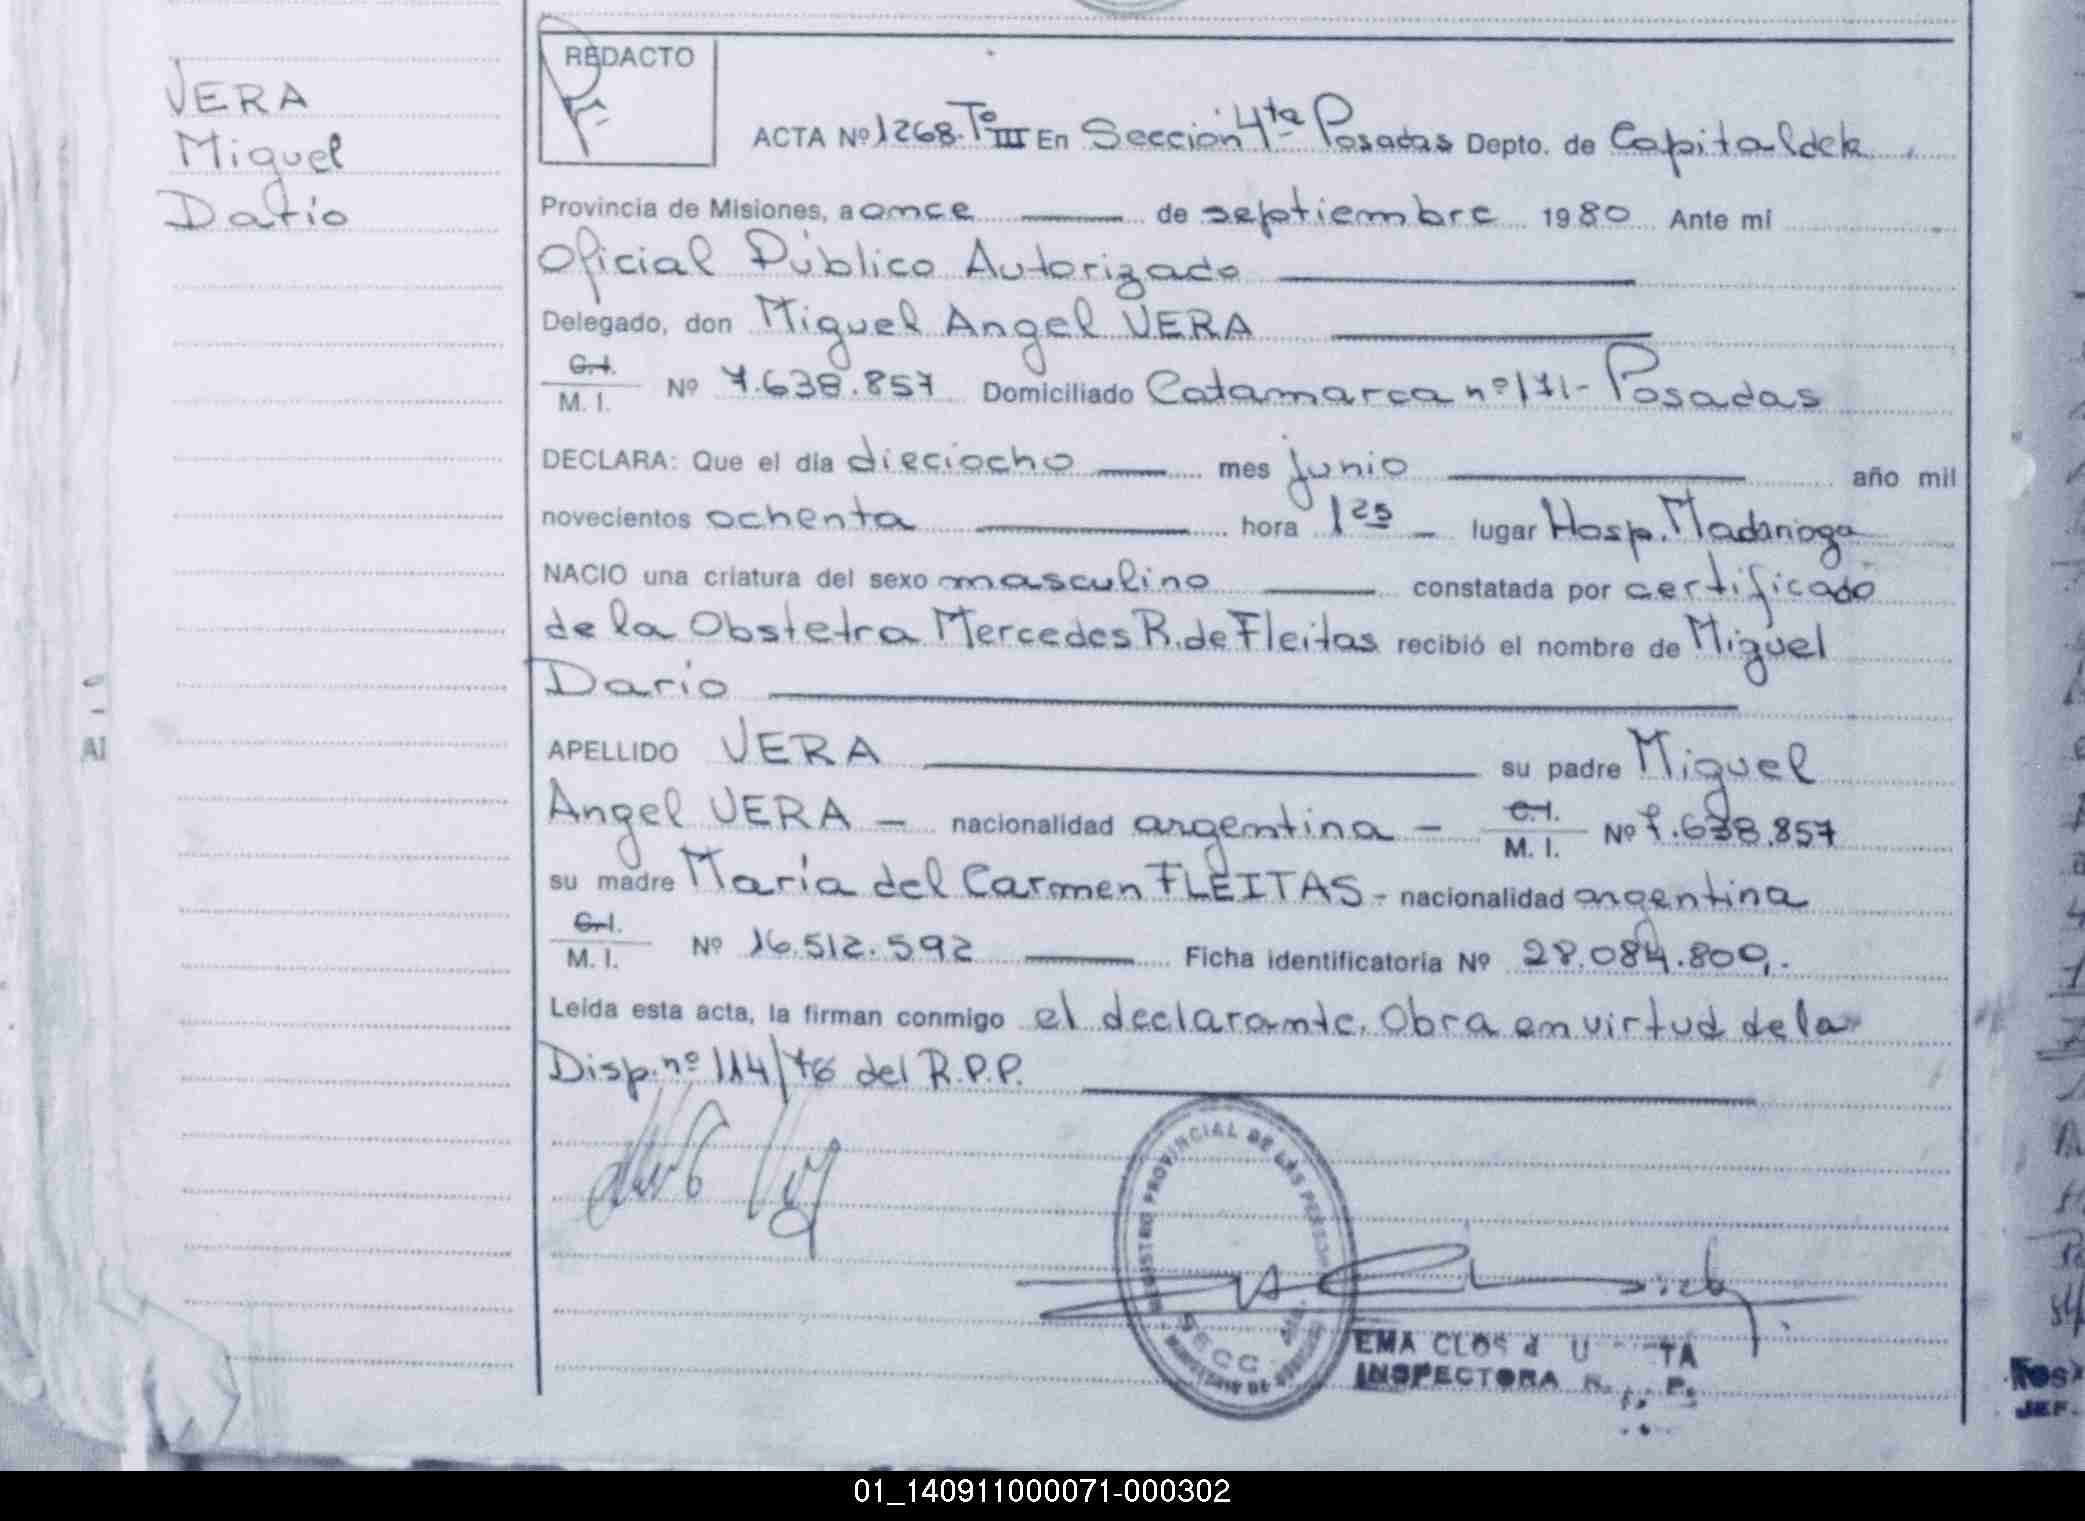 VERA
Miguel
Darío
REDACTO
ACTA Nº 1268. Tº III En Sección 4ta Posadas Depto. de Capital de la
Provincia de Misiones, a once de septiembre 1980 Ante mi
Oficial Público Autorizado
Delegado, don Miguel Angel VERA
C.I.
M. I. Nº 7.638.857 Domiciliado Catamarca nº 171- Posadas
DECLARA: Que el dia dieciocho mes junio año mil
novecientos ochenta hora 1 25 lugar Hosp. Madariaga
NACIO una criatura del sexo masculino constatada por certificado
de la Obstetra Mercedes R. de Fleitas recibió el nombre de Miguel
Darío
APELLIDO VERA su padre Miguel
Angel VERA - nacionalidad argentina - C.I.
M. I. Nº 7.638.857
su madre María del Carmen FLEITAS - nacionalidad argentina
C.I.
M. I. Nº 16.512.592 Ficha identificatoria Nº 28.084.800,-
Leida esta acta, la firman conmigo el declarante. Obra en virtud de la
Disp. nº 114/76 del R.P.P.
REGISTRO PROVINCIAL DE LAS PERSON
SECC
EMA CLOS d
INSPECTORA
JEF.
01_140911000071-000302